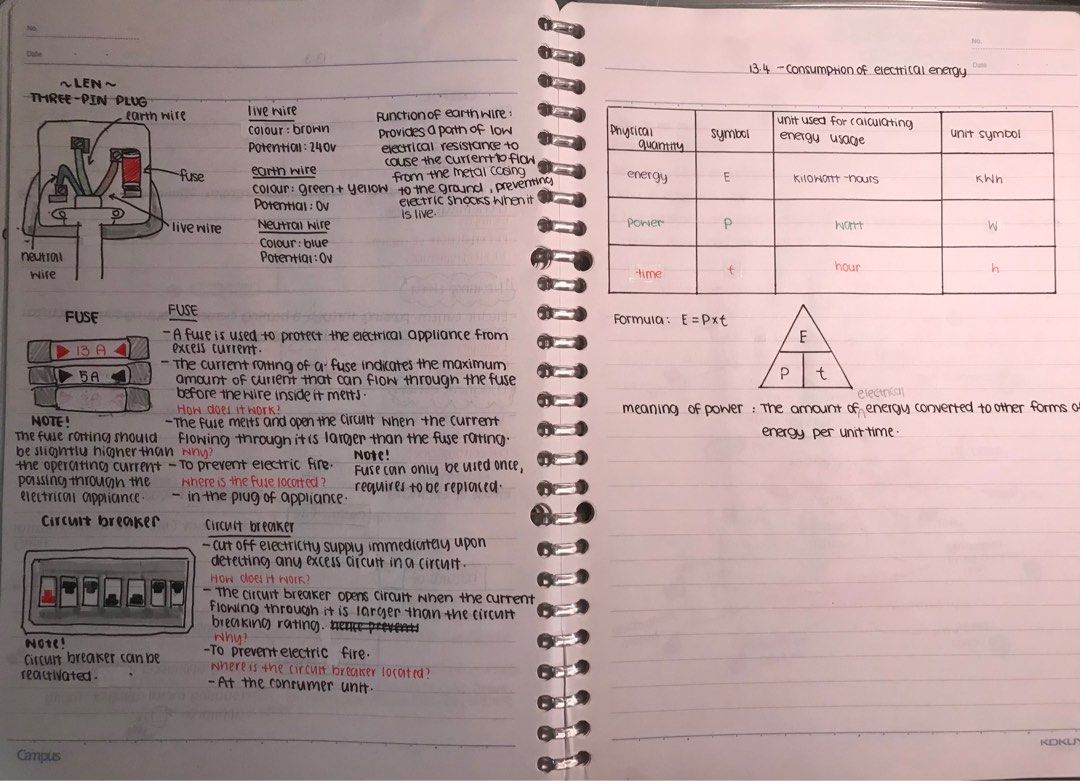 No.
Date
~LEN~
THREE-PIN PLUG
earth wire
fuse
live wire
neutral
wire
live wire
colour: brown
Potential: 240v
earth wire
colour: green + yellow
Potential: 0v
Neutral wire
Colour: blue
Potential: 0v
Function of earth wire:
Provides a path of low
electrical resistance to
cause the current to flow
from the metal casing
to the ground, preventing
electric shocks when it
is live.
FUSE
13 A
5A
3A
NOTE!
The fuse rating should
be slightly higher than
the operating current
passing through the
electrical appliance.
FUSE
- A fuse is used to protect the electrical appliance from
excess current.
- The current rating of a fuse indicates the maximum
amount of current that can flow through the fuse
before the wire inside it melts.
How does it work?
- The fuse melts and open the circuit when the current
flowing through it is larger than the fuse rating.
Why?
- To prevent electric fire.
Where is the fuse located?
- in the plug of appliance.
Note!
Fuse can only be used once,
requires to be replaced.
Circuit breaker
Note!
Circuit breaker can be
reactivated.
Circuit breaker
- Cut off electricity supply immediately upon
detecting any excess circuit in a circuit.
How does it work?
- The circuit breaker opens circuit when the current
flowing through it is larger than the circuit
breaking rating. hence prevents
Why?
- To prevent electric fire.
Where is the circuit breaker located?
- At the consumer unit.
Campus
No.
Date
13.4 - Consumption of electrical energy
Physical quantity	symbol	unit used for calculating energy usage	unit symbol
energy	E	kilowatt-hours	kWh
power	P	watt	W
time	t	hour	h
Formula: E = P x t
E
P t
electrical
meaning of power: The amount of energy converted to other forms of
energy per unit time.
KOKUY